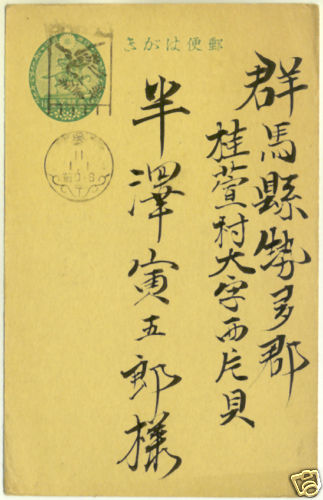 郵便はがき
群馬縣勢多郡
桂萱村大字西片貝
半澤寅五郎様